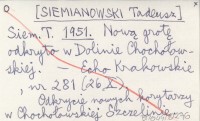 [SIEMIANOWSKI Tadeusz]
Siem. T. 1951. Nową grotę
odkryto w Dolinie Chochołow-
skiej. — Echo Krakowskie
, nr 281 (26 X),
Odkrycie nowych korytarzy
w Chochołowskiej Szczelinie